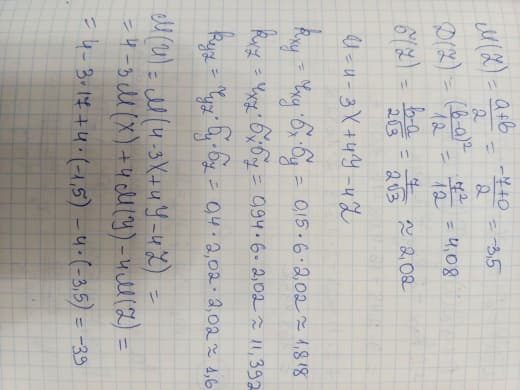 M(Z) = (a+b)/2 = (-7+0)/2 = -3,5
D(Z) = (b-a)²/12 = 7²/12 = 4,08
σ(Z) = (b-a)/(2√3) = 7/(2√3) ≈ 2,02
U = 4 - 3X + 4Y - 4Z
kxy = rxy · σx · σy = 0,15 · 6 · 2,02 ≈ 1,818
kxz = rxz · σx · σz = 0,94 · 6 · 2,02 ≈ 11,392
kyz = ryz · σy · σz = 0,4 · 2,02 · 2,02 ≈ 1,6
M(U) = M(4-3X+4Y-4Z) =
= 4 - 3M(X) + 4M(Y) - 4M(Z) =
= 4 - 3·17 + 4·(-1,5) - 4·(-3,5) = -39